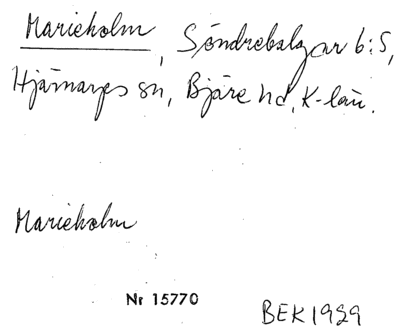 Marieholm, Söndrebalgar 6:5,
Hjärnarps sn, Bjäre hd, K-län.
Marieholm
Nr 15770
BEK 1929